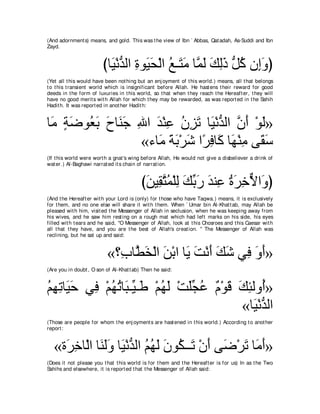 (And adornments) means, and gold. This was the view of Ibn ` Abbas, Qatadah, As-Suddi and Ibn
Zayd.
(وَإِن كُلُّ ذَلِكَ لَمَّا مَتَـعُ الْحَيَوةِ الدُّنْيَا)
(Yet all this would have been nothing but an enjoyment of this world.) means, all that belongs
to this transient world which is insignificant before Allah. He hastens their reward for good
deeds in the form of luxuries in this world, so that when they reach the Hereafter, they will
have no good merits with Allah for which they may be rewarded, as was reported in the Sahih
Hadith. It was reported in another Hadith:
«لَوْ أَنَّ الدُّنْيَا تَزِنُ عِنْدَ اللهِ جَنَاحَ بَعُوضَةٍ مَا
سَقَى مِنْهَا كَافِرًا شَرْبَةَ مَاء»
(If this world were worth a gnat's wing before Allah, He would not give a disbeliever a drink of
water.) Al-Baghawi narrated its chain of narration.
(وَالاٌّخِرَةُ عِندَ رَبِّكَ لِلْمُتَّقِينَ)
(And the Hereafter with your Lord is (only) for those who have Taqwa.) means, it is exclusively
for them, and no one else will share it with them. When ` Umar bin Al-Khattab, may Allah be
pleased with him, visited the Messenger of Allah in seclusion, when he was keeping away from
his wives, and he saw him resting on a rough mat which had left marks on his side, his eyes
filled with tears and he said, "O Messenger of Allah, look at this Chosroes and this Caesar with
all that they have, and you are the best of Allah's creation. '' The Messenger of Allah was
reclining, but he sat up and said:
«أَوَ فِي شَكَ أَنْتَ يَا ابْنَ الْخَطَّابِ؟»
(Are you in doubt, O son of Al-Khattab) Then he said:
«أُولَئِكَ قَوْمٌ عُجِّلَتْ لَهُمْ طَــيِّـبَاتُهُمْ فِي حَيَاتِهِمُ
الدُّنْيَا»
(Those are people for whom the enjoyments are hastened in this world.) According to another
report:
«أَمَا تَرْضَى أَنْ تَــكُونَ لَهُمُ الدُّنْيَا وَلَنَا الْاخِرَة»
(Does it not please you that this world is for them and the Hereafter is for us) In as the Two
Sahihs and elsewhere, it is reported that the Messenger of Allah said: